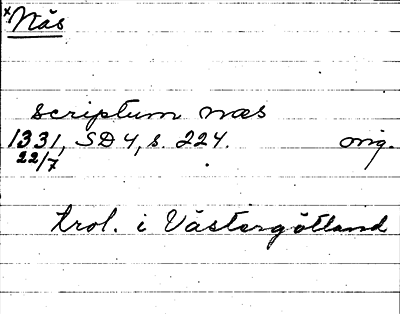 ×Näs
scriptum næs
1331, SD 4, s. 224. orig.
22/7
trol. i Västergötland